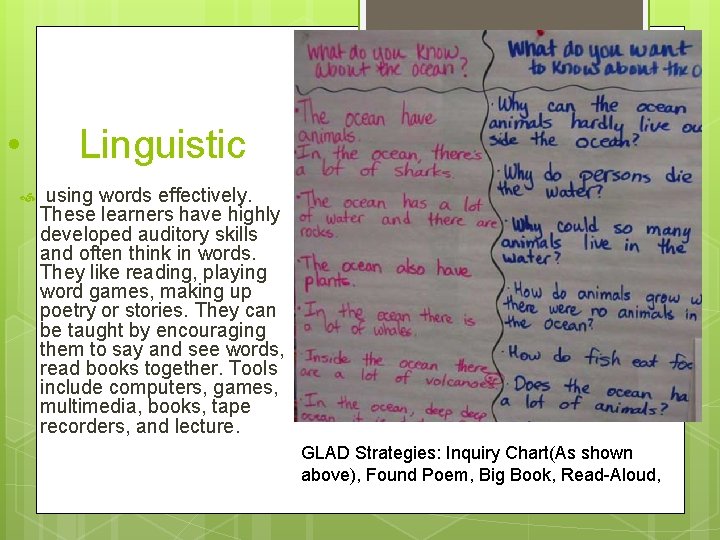 • Linguistic
using words effectively.
These learners have highly
developed auditory skills
and often think in words.
They like reading, playing
word games, making up
poetry or stories. They can
be taught by encouraging
them to say and see words,
read books together. Tools
include computers, games,
multimedia, books, tape
recorders, and lecture.
What do you know
about the ocean?
• The ocean have
animals.
• In, the ocean, there's
a lot of sharks.
• The ocean has a lot
of water and there are
rocks.
• The ocean also have
plants.
• In the ocean there is
a lot of whales.
• Inside the ocean there
are a lot of volcanoes
• In the ocean, deep deep
What do you want
to know about the o
• Why can the ocean
animals hardly live ou
side the ocean?
• Why do persons die
the water?
• Why could so many
animals live in the
water?
• How do animals grow w
there were no animals in
the ocean?
• How do fish eat foo
• Does the ocean ha
a lot of animals?
GLAD Strategies: Inquiry Chart(As shown
above), Found Poem, Big Book, Read-Aloud,